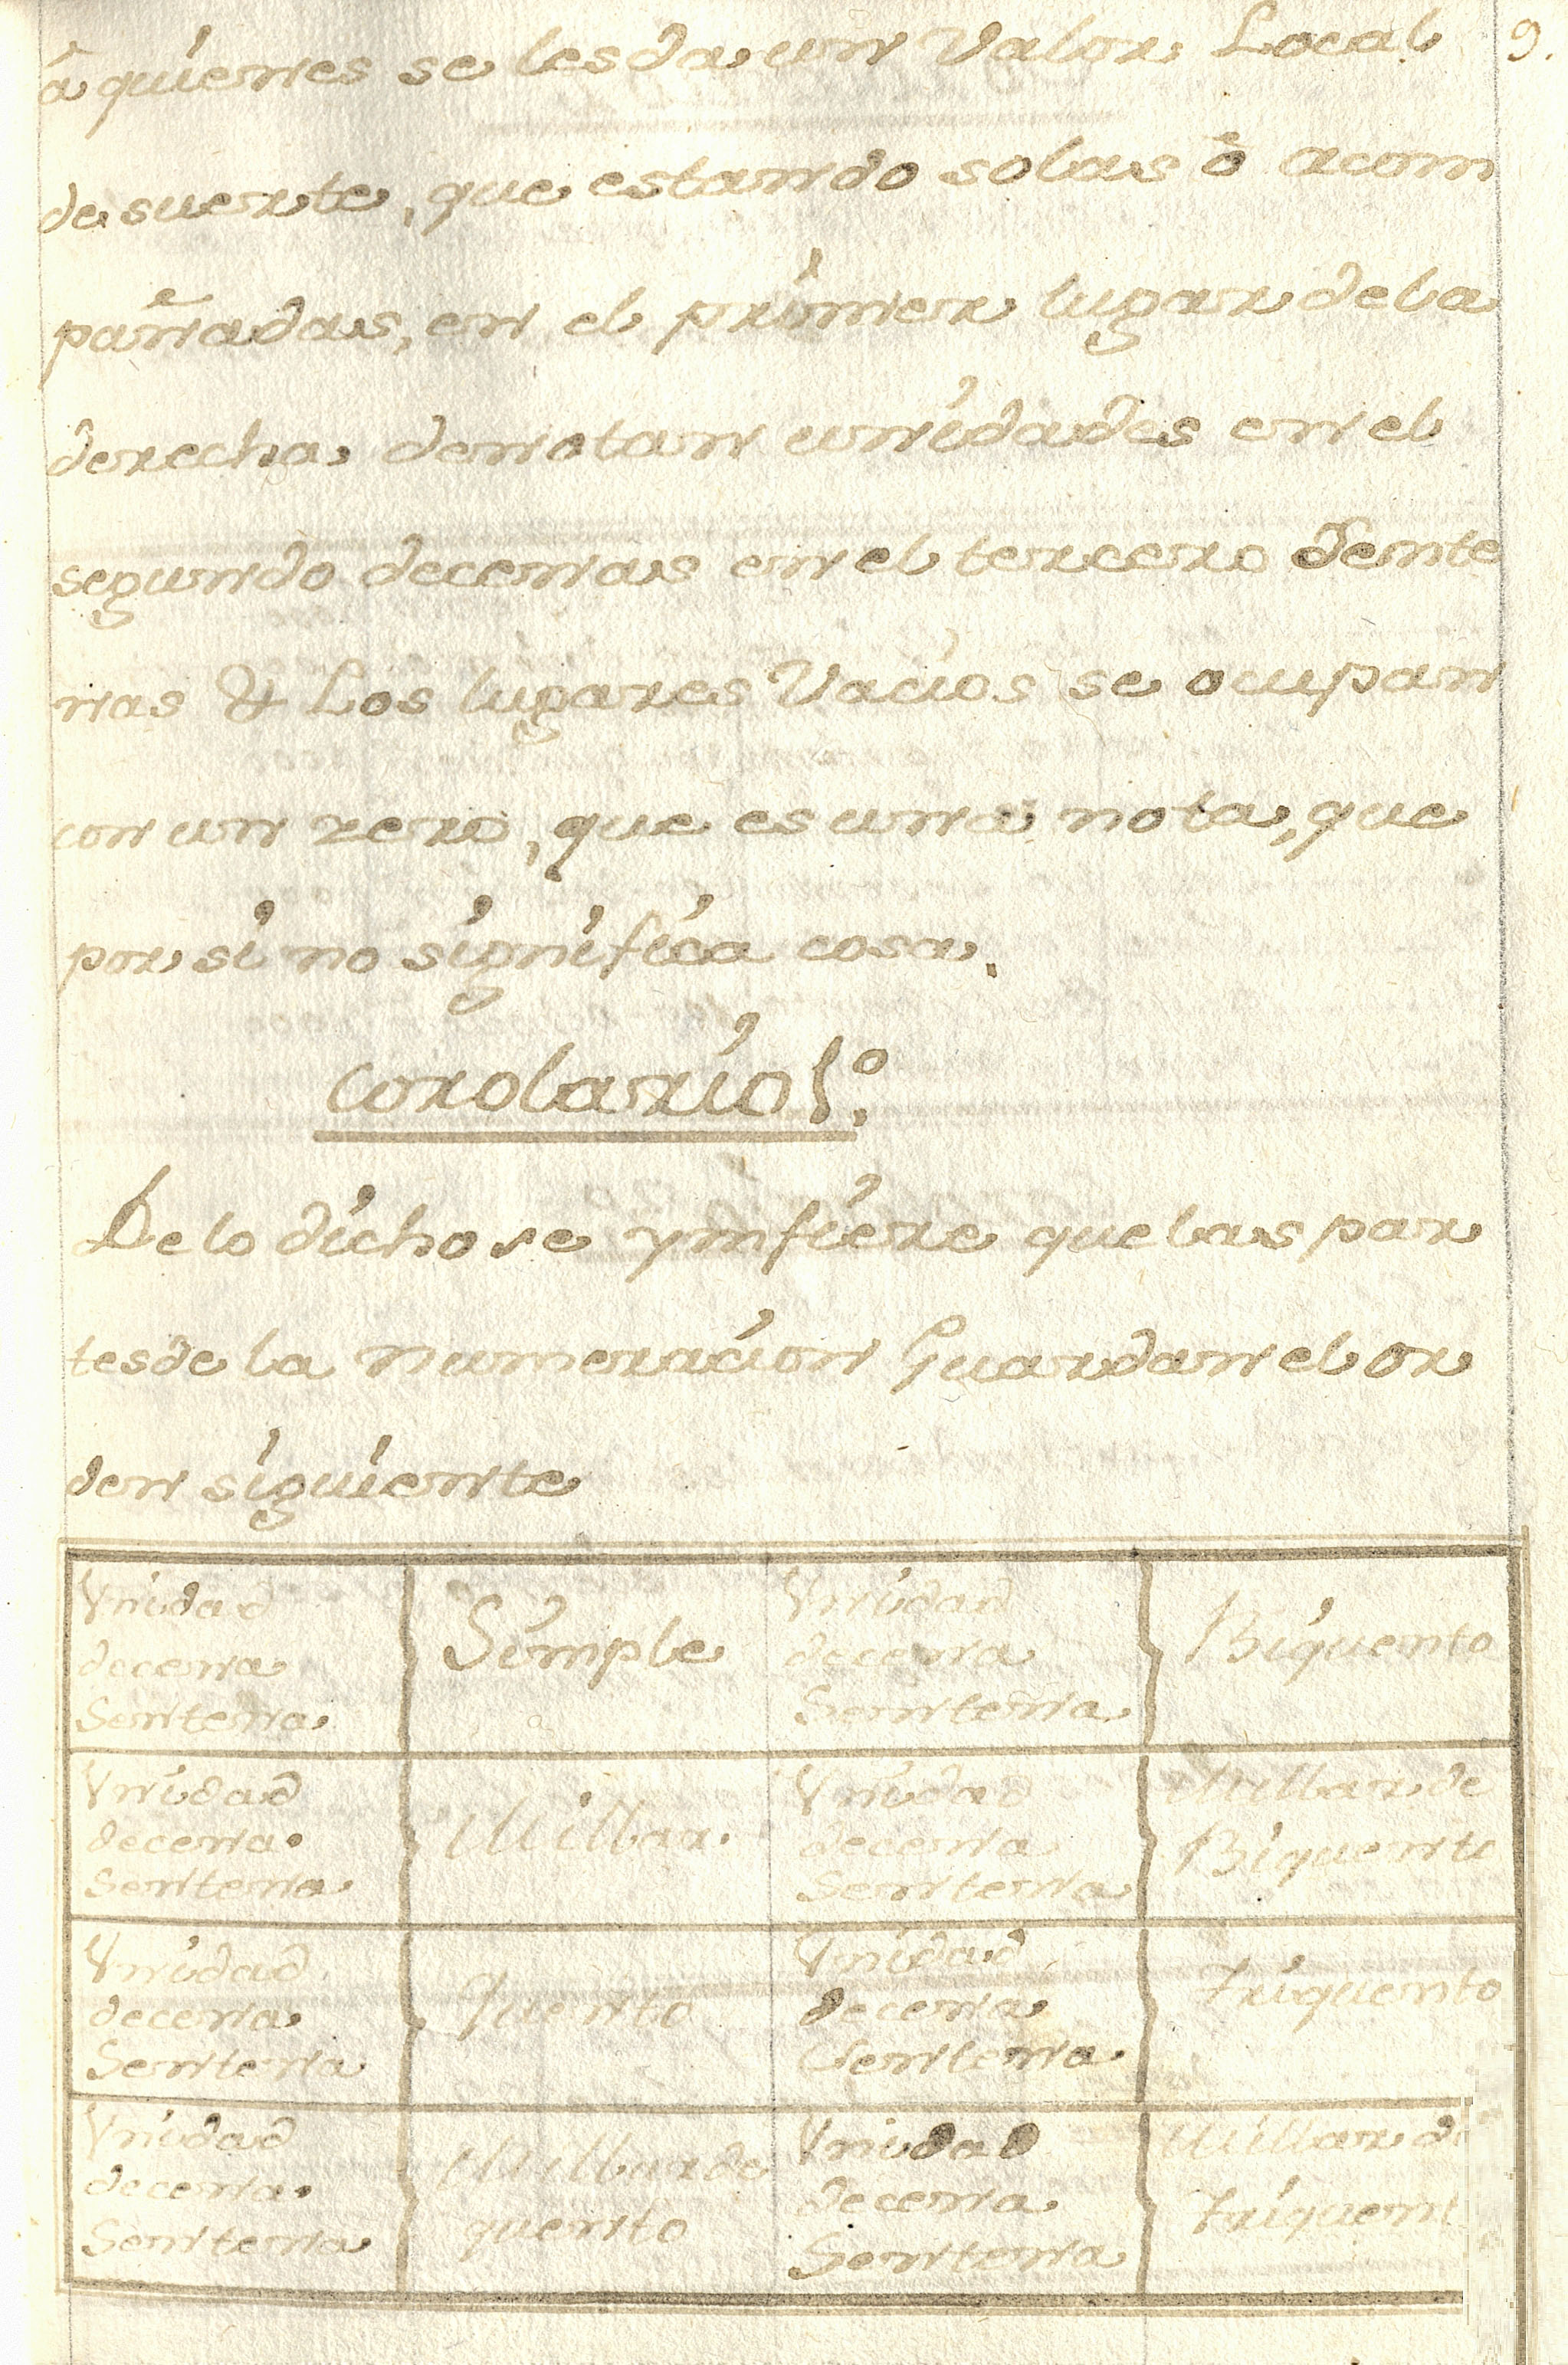 á quienes se les da un Valor Local 9.
de suerte, que estando solas ò acom
pañadas, en el primer lugar de la
derecha denotan unidades en el
segundo decenas en el tercero Sente
nas & Los lugares Vacios se ocupan
con un zero, que es una nota, que
por si no significa cosa.
Corolario 1.º
De lo dicho se ynfiere que las par
tes de la numeracion Guardan el or
den siguiente
Vnidad
decena
Sentena
Simple
Vnidad
decena
Sentena
Biquento
Vnidad
decena
Sentena
Millar.
Vnidad
decena
Sentena
Millar de
Biquento
Vnidad
decena
Sentena
Quento
Vnidad
decena
Sentena
Triquento
Vnidad
decena
Sentena
Millar de
quento
Vnidad
decena
Sentena
Millar de
Triquent